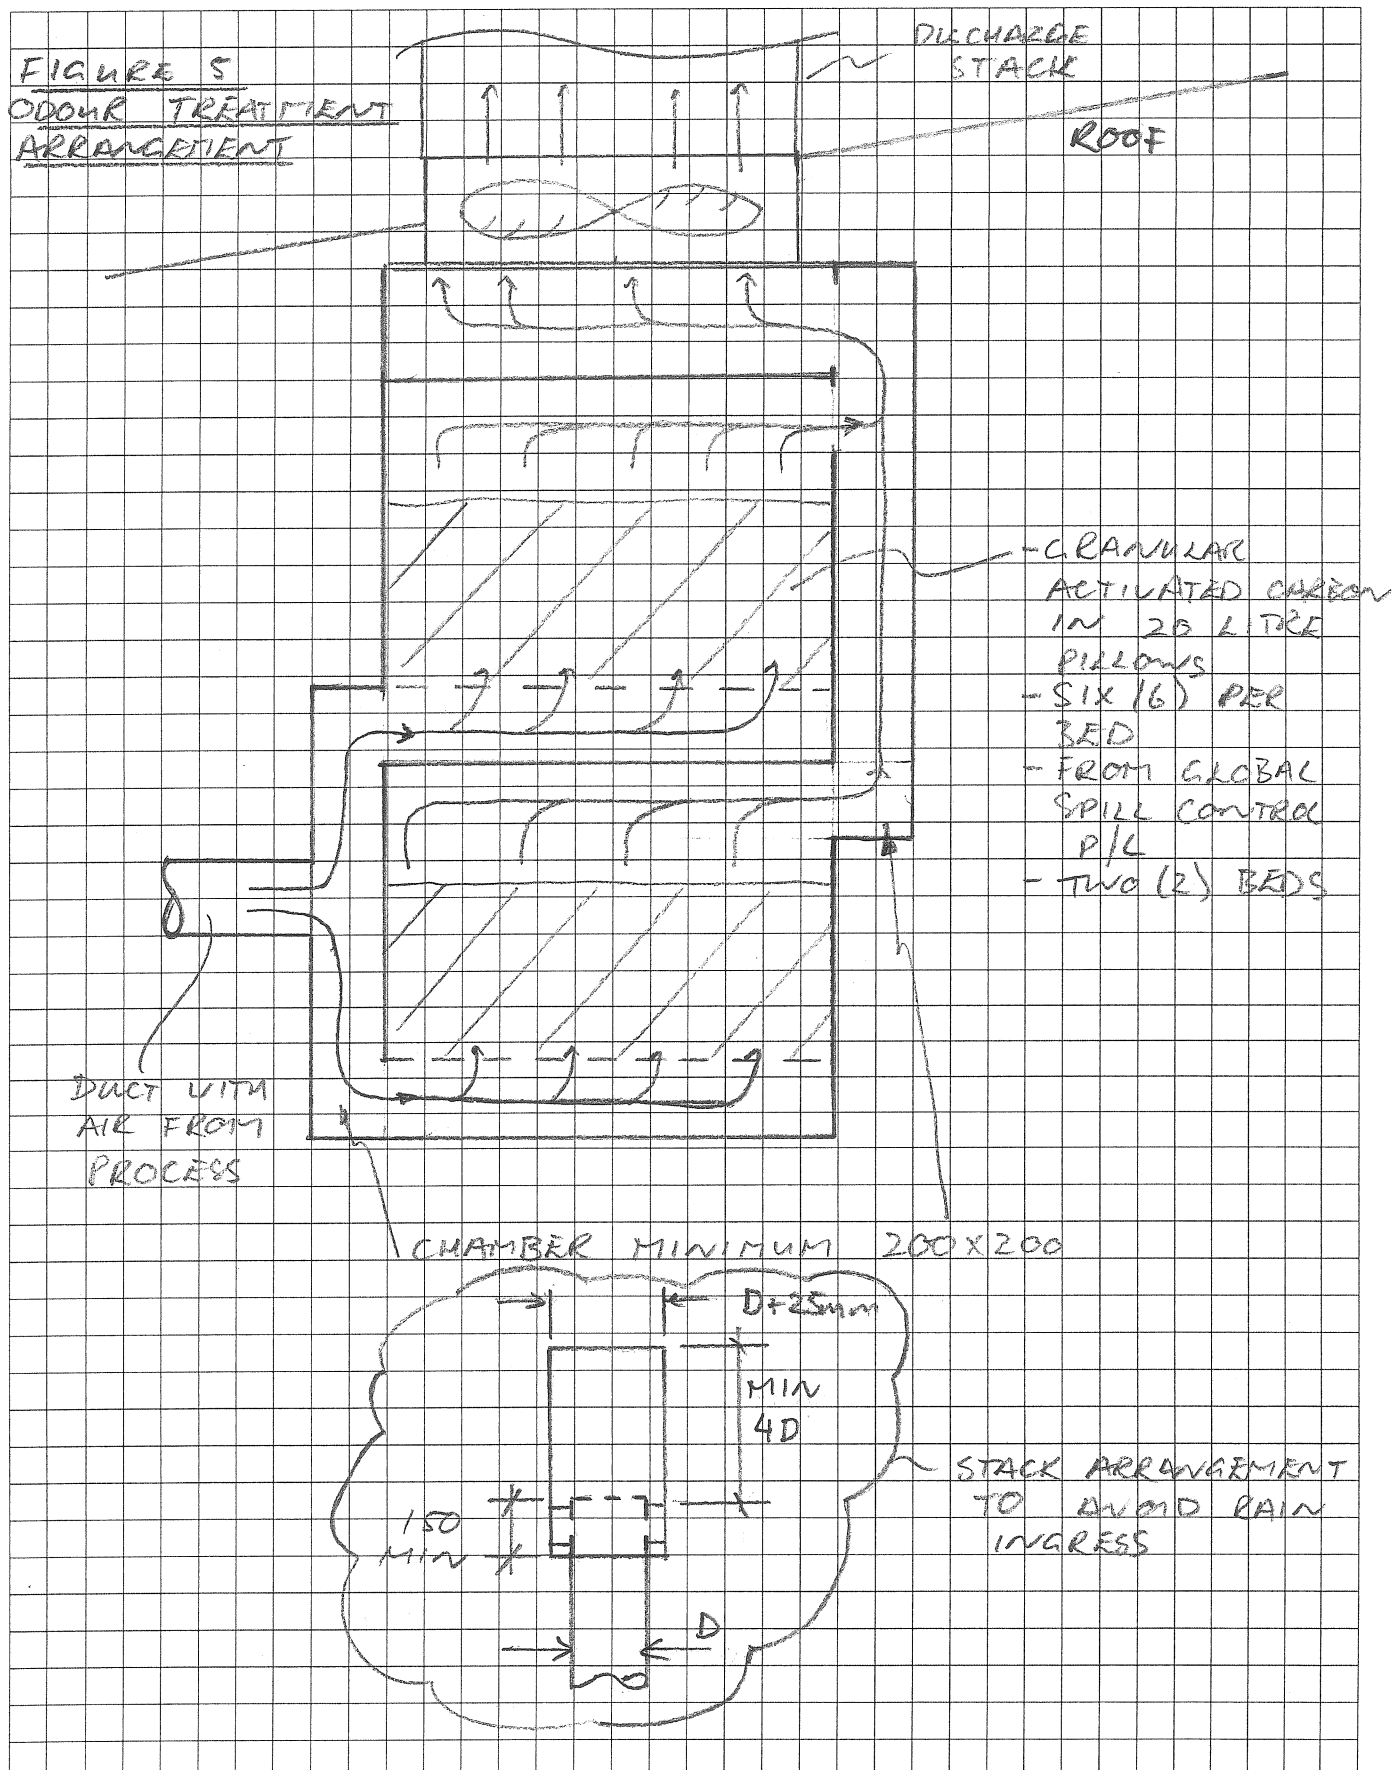 FIGURE 5
ODOUR TREATMENT
ARRANGEMENT
DISCHARGE
STACK
ROOF
- GRANULAR
ACTIVATED CARBON
IN 20 LITRE
PILLOWS
- SIX (6) PER
BED
- FROM GLOBAL
SPILL CONTROL
P/L
- TWO (2) BEDS
DUCT WITH
AIR FROM
PROCESS
CHAMBER MINIMUM 200x200
D+25mm
MIN
4D
150
MIN
D
STACK ARRANGEMENT
TO AVOID RAIN
INGRESS